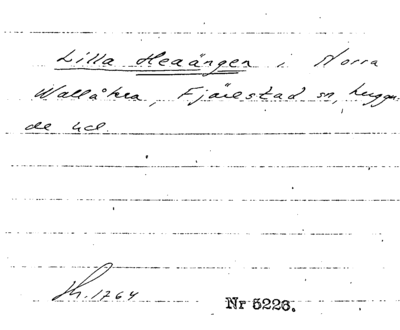 Lilla Heaängen i Norra
Wallåkra, Fjärestad sn, Luggu-
de hd.
Lh. 1764
Nr 5226.